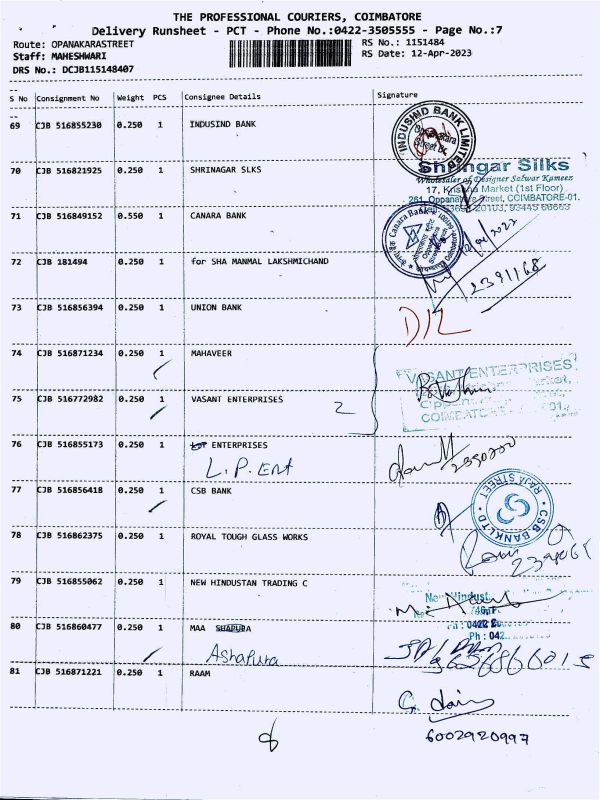 THE PROFESSIONAL COURIERS, COIMBATORE
Delivery Runsheet - PCT - Phone No.:0422-3505555 - Page No.:7
Route: OPANAKARASTREET
RS No.: 1151484
Staff: MAHESHWARI
RS Date: 12-Apr-2023
DRS No.: DCJB115148407
S No Consignment No Weight PCS Consignee Details Signature
69 CJB 516855230 0.250 1 INDUSIND BANK
INDUSIND BANK LIMITED
Oppanakara
Street Br.
70 CJB 516821925 0.250 1 SHRINAGAR SLKS
Shringar Silks
Wholesaler of Designer Selwar Kameez
17, Krishna Market (1st Floor)
261, Oppanakara Street, COIMBATORE-01.
71 CJB 516849152 0.550 1 CANARA BANK
Canara Bank
72 CJB 181494 0.250 1 for SHA MANMAL LAKSHMICHAND
2391168
73 CJB 516856394 0.250 1 UNION BANK
D/L
74 CJB 516871234 0.250 1 MAHAVEER
75 CJB 516772982 0.250 1 VASANT ENTERPRISES
2
VASANT ENTERPRISES
COIMBATORE
76 CJB 516855173 0.250 1 ENTERPRISES
L.P. Ent
77 CJB 516856418 0.250 1 CSB BANK
CSB BANK LTD
RAJA STREET
78 CJB 516862375 0.250 1 ROYAL TOUGH GLASS WORKS
79 CJB 516855062 0.250 1 NEW HINDUSTAN TRADING C
New Hindust
80 CJB 516860477 0.250 1 MAA SHAPURA
Ashapura
81 CJB 516871221 0.250 1 RAAM
6002920997